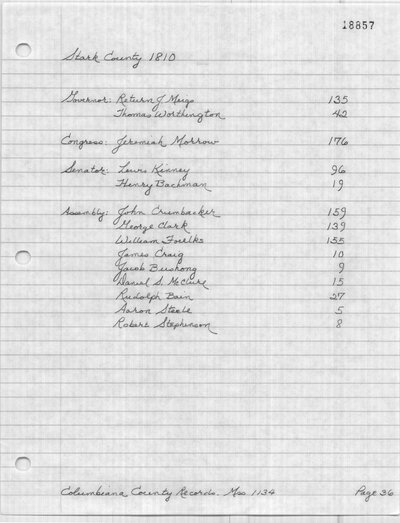 18857
Stark County 1810
Governor: Return J Meigs 135
Thomas Worthington 42
Congress: Jeremiah Morrow 176
Senator: Lewis Kinney 96
Henry Bachman 19
Assembly: John Crumbacker 159
George Clark 139
William Foulks 155
James Craig 10
Jacob Bushong 9
Daniel S. McClure 15
Rudolph Bain 27
Aaron Steele 5
Robert Stephenson 8
Columbiana County Records. Mss 1134 Page 36